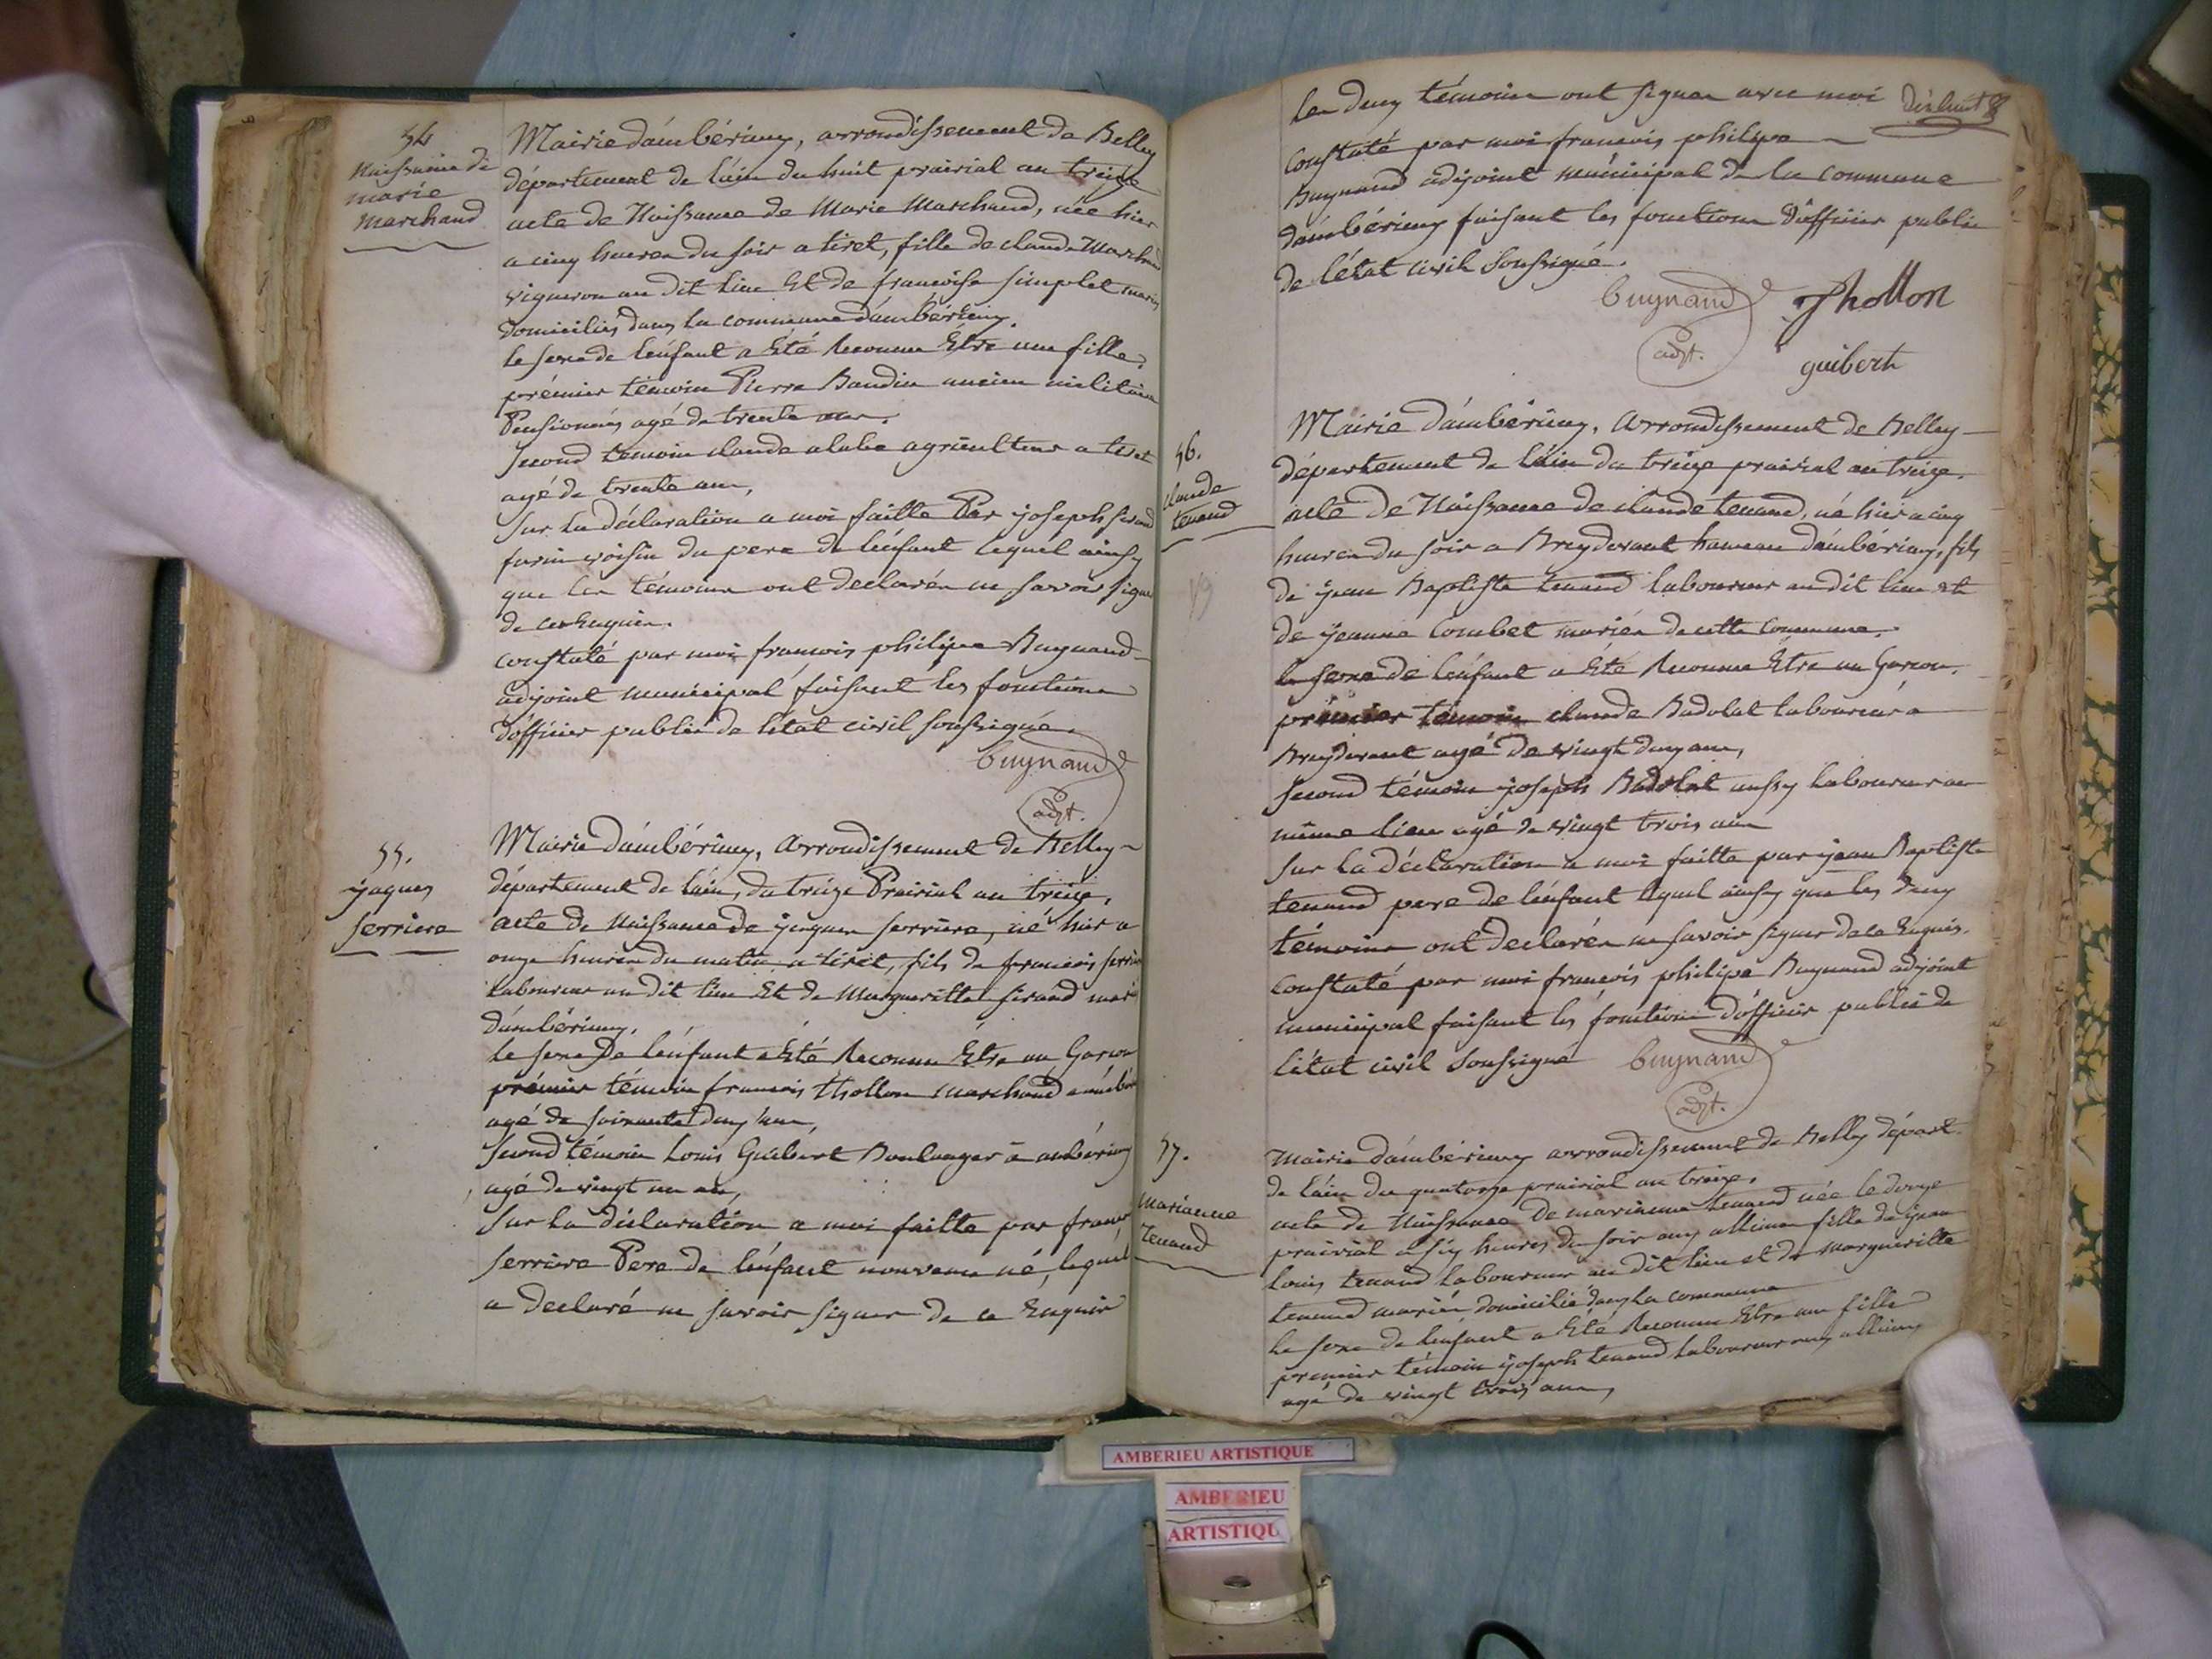 54
Naissance de
marie
marchand
Mairie d'ambérieux, arrondissement de Belley
département de l'ain du huit prairial an treize
acte de Naissance de Marie Marchand, née hier
a cinq heures du soir a tiret, fille de claude Marchand
vigneron au dit lieu Et de francoise simplet mariés
Domiciliés dans la commune d'ambérieux.
le sexe de lenfant a Eté Reconnu Etre une fille,
prémier témoin Pierre Baudin ancien militaire
Pensionnés agé de trente ans.
second témoin claude alabe agriculteur a tiret
agé de trente ans,
sur la déclaration a moi faitte Par joseph
voisin du pere de lenfant lequel ainsy
que les témoins ont declarés ne savoir signer
de ce Enquis.
constaté par moi francois philipe Buynand
adjoint municipal faisant les fonctions
d'officier public de l'état civil soussigné.
buynand
adjt.
55.
jaques
serriere
Mairie d'ambérieux, arrondissement de Belley
département de l'ain, du treize Prairial an treize,
acte de Naissance de jaques serriere, né hier a
onze heures du matin a tiret, fils de francois serriere
laboureur au dit lieu Et de Margueritte sirand mariés
d'ambérieux.
le sexe De lenfant a Eté Reconnu Etre un Garcon
prémier témoin francois thollon marchand a ambérieux
agé de soixante deux ans,
second témoin Louis Guibert Boulanger a ambérieux
agé de vingt un an,
sur la déclaration a moi faitte par francois
serriere Pere de lenfant nouveau né, lequel
a declaré ne savoir signer de ce Enquis
les deux témoins ont signer avec moi
dixhuit 8
constaté par moi francois philipe
Buynand adjoint municipal de la commune
d'ambérieux faisant les fonctions d'officier public
de l'état civil soussigné.
buynand
Thollon
adjt.
guibert
56.
claude
tenand
Mairie d'ambérieux, arrondissement de Belley
département de l'ain du treize prairial an treize.
acte de Naissance de claude tenand, né hier a cinq
heures du soir a Breydevant hameau d'ambérieux, fils
de jean Baptiste tenand laboureur au dit lieu et
de jeanne Combet mariés de cette commune.
le sexe de lenfant a Eté Reconnu Etre un Garcon.
prémier témoin claude Badolat laboureur a
Breydevant agé de vingt deux ans,
second témoin joseph Badolat aussy laboureur au
même lieu agé de vingt trois ans
sur la déclaration a moi faitte par jean Baptiste
tenand pere de lenfant lequel ainsy que les deux
témoins ont declarés ne savoir signer de ce Enquis.
constaté par moi francois philipe Buynand adjoint
municipal faisant les fonctions d'officier public de
l'état civil soussigné
buynand
adjt.
57.
marianne
Tenand
Mairie d'ambérieux arrondissement de Belley départ.
de l'ain du quatorze prairial an treize.
acte de Naissance De marianne tenand née le douze
prairial a six heures du soir aux allimes fille de jean
louis tenand laboureur au dit lieu et de margueritte
tenand mariés domiciliés dans la commune
le sexe de lenfant a Eté Reconnu Etre une fille
premier témoin joseph tenand laboureur aux allimes
agé de vingt trois ans,
AMBERIEU ARTISTIQUE
AMBERIEU
ARTISTIQU